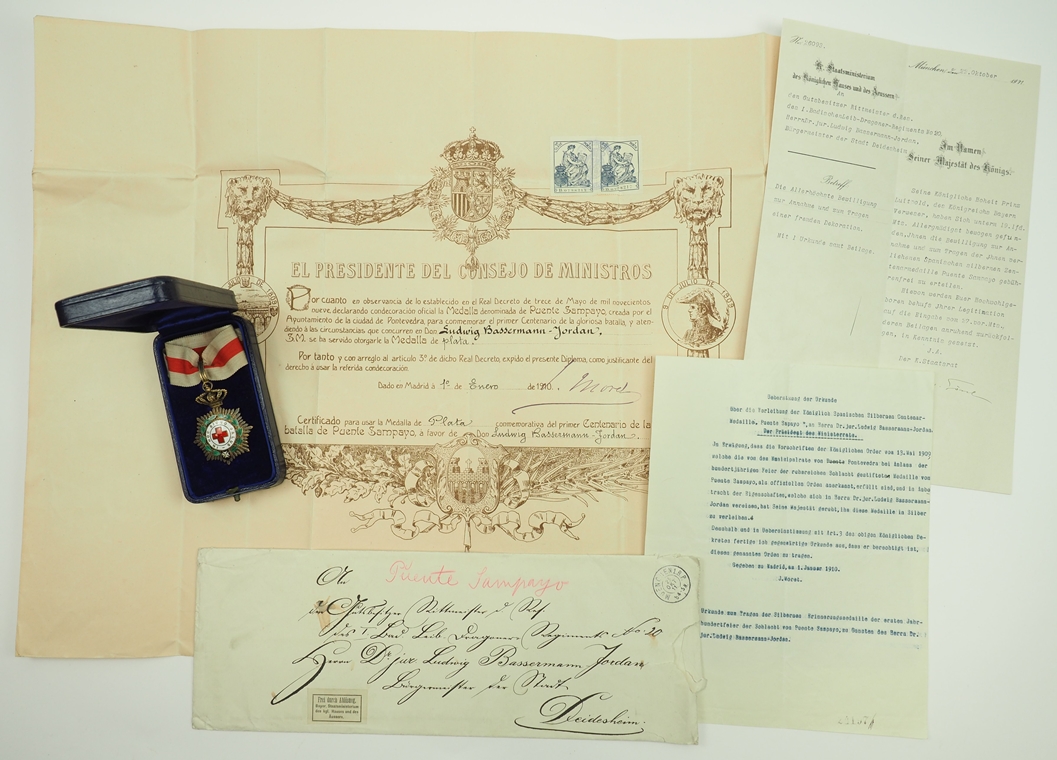 EL PRESIDENTE DEL CONSEJO DE MINISTROS
Por cuanto en observancia de lo establecido en el Real Decreto de trece de Mayo de mil novecientos
nueve, declarando condecoración oficial la Medalla denominada de Puente Sampayo, creada por el
Ayuntamiento de la ciudad de Pontevedra, para conmemorar el primer Centenario de la gloriosa batalla, y aten-
diendo à las circunstancias que concurren en Don Ludwig Bassermann-Jordan.
S.M. se ha servido otorgarle la Medalla de plata.
Por tanto y con arreglo al artículo 3º de dicho Real Decreto, expido el presente Diploma, como justificante del
derecho à usar la referida condecoración.
Dado en Madrid à 1º de Enero de 1910.
Moret
Certificado para usar la Medalla de Plata conmemorativa del primer Centenario de la
batalla de Puente Sampayo, à favor de Don Ludwig Bassermann-Jordan.
8 DE JULIO DE 1909
München, den 22. Oktober
K. Staatsministerium
des Königlichen Hauses und des Äussern
An
den Gutsbesitzer Rittmeister d.Res.
Herrn Dr.jur.Ludwig Bassermann-Jordan,
Bürgermeister der Stadt Deidesheim
Im Namen
Seiner Majestät des Königs.
Betreff
Die Allerhöchste Bewilligung
zur Annahme und zum Tragen
einer fremden Dekoration.
Seine Königliche Hoheit Prinz
Luitpold, des Königreichs Bayern
Verweser, haben Sich unterm 19.lfd.
Mts. Allergnädigst bewogen gefun-
den, Ihnen die Bewilligung zur An-
nahme und zum Tragen der Ihnen ver-
liehenen spanischen silbernen Zen-
tenarmedaille Puente Sampayo gebüh-
renfrei zu erteilen.
J.A.
Der K.Staatsrat
Uebersetzung der Urkunde
über die Verleihung der Königlich Spanischen Silbernen Centenar-
Medaille, Puente Sampayo", an Herrn Dr.jur.Ludwig Bassermann-Jordan.
Der Präsident des Ministerrats.
In Erwägung, dass die Vorschriften der Königlichen Order vom 13.Mai 1909
welche die von dem Munizipalrate von Pontevedra bei Anlass der
hundertjährigen Feier der ruhmreichen Schlacht gestiftete Medaille von
Puente Sampayo, als offiziellen Orden anerkannt, erfüllt sind, und in Anbe
tracht der Eigenschaften, welche sich in Herrn Dr.jur.Ludwig Bassermann-
Jordan vereinen, hat Seine Majestät geruht, ihm diese Medaille in Silber
zu verleihen.
Deshalb und in Uebereinstimmung mit Art.3 des obigen Königlichen De-
kretes fertige ich gegenwärtige Urkunde aus, dass er berechtigt ist,
diesen genannten Orden zu tragen.
Gegeben zu Madrid, am 1.Januar 1910.
J.Moret.
Urkunde zum Tragen der Silbernen Erinnerungsmedaille der ersten Jahr-
hundertfeier der Schlacht von Puente Sampayo, zu Gunsten des Herrn Dr.
jur.Ludwig Bassermann-Jordan.
Puente Sampayo
An
den Gutsbesitzer Rittmeister d. Res.
des 1. Bad. Leib-Dragoner-Regiments No 20
Herrn Dr jur. Ludwig Bassermann-Jordan
Bürgermeister der Stadt
Deidesheim.
Frei durch Ablösung.